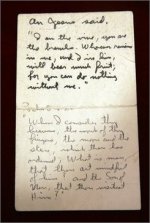 An Cyons said.
"I am the vine, you are
the branches. Whoever remains
in me, and I in him,
will bear much fruit;
for you can do nothing
without me.
"When I consider the
heavens, the work of thy
fingers, the moon and the
stars, which thou has
ordained; What is man,
that thou art mindful
of him? and the Son of
Man, that thou visitest
Him?"